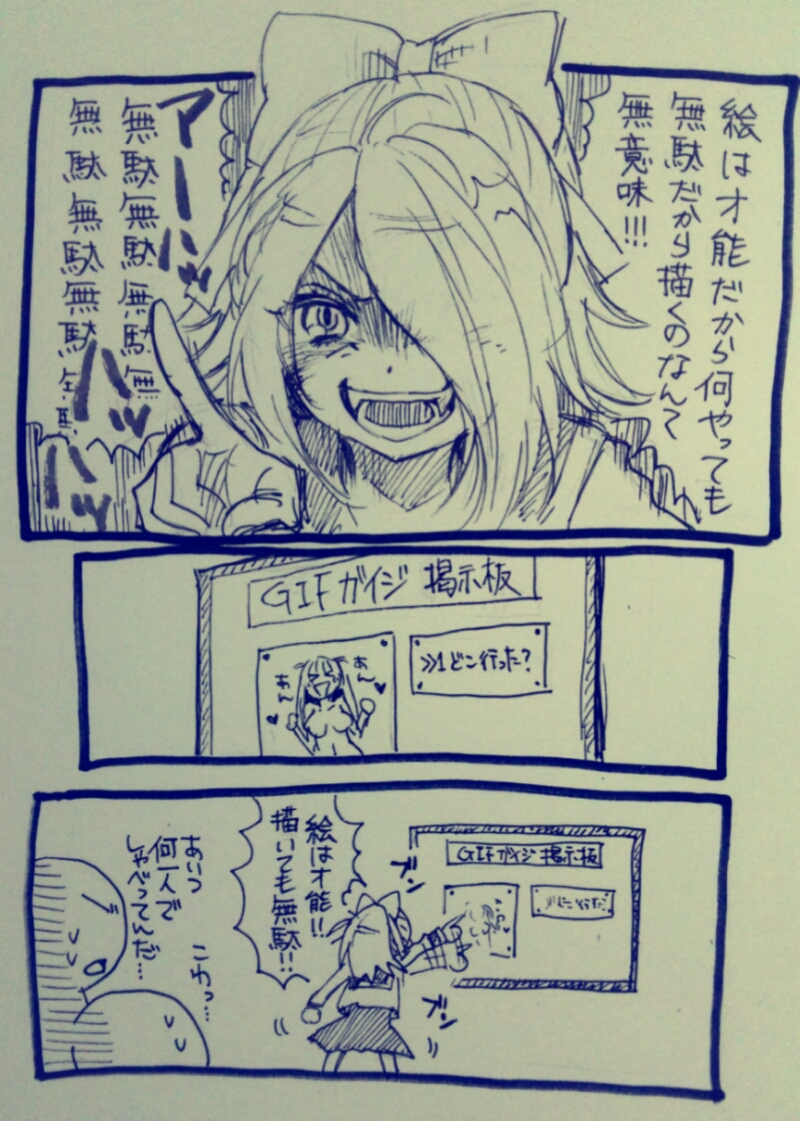 絵は才能だから何やっても
無駄だから描くのなんて
無意味!!!
アーーーハッ
ハッ
ハッ
無駄無駄無駄無
無駄無駄無駄
GIFガイジ 掲示板
あん♡
あん♡
>>1どこ行った?
GIFガイジ 掲示板
ドン
ドン
絵は才能!!
描いても無駄!!
こわっ…
あいつ
何一人で
しゃべってんだ…